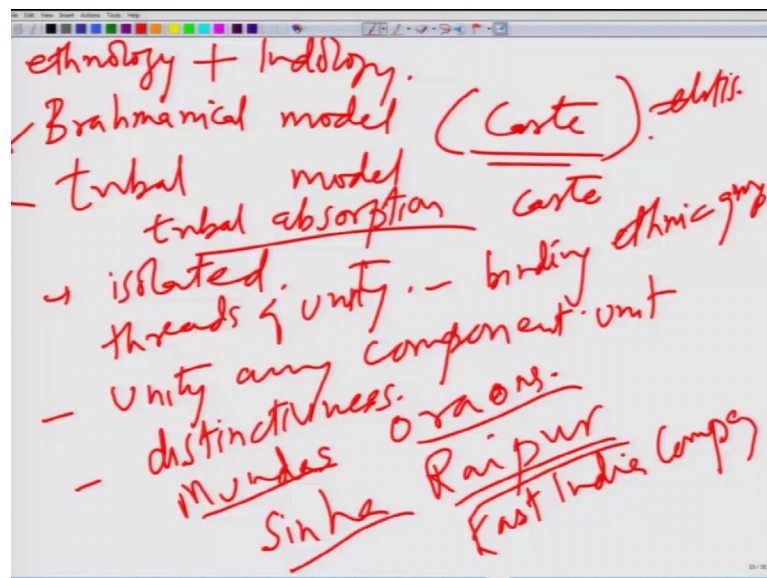 File Edit View Insert Actions Tools Help
ethnology + Indology.
Brahmanical model (Caste)
- tribal model caste
tribal absorption
isolated.
threads of unity. - binding ethnic group
- unity among component unit
- distinctiveness.
Mundas Oraons.
Sinha Raipur
East India Company